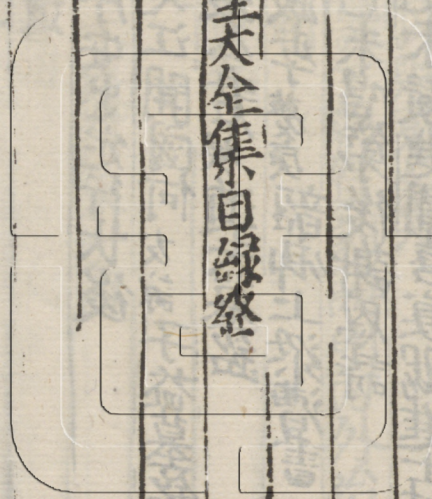 大全集目録終